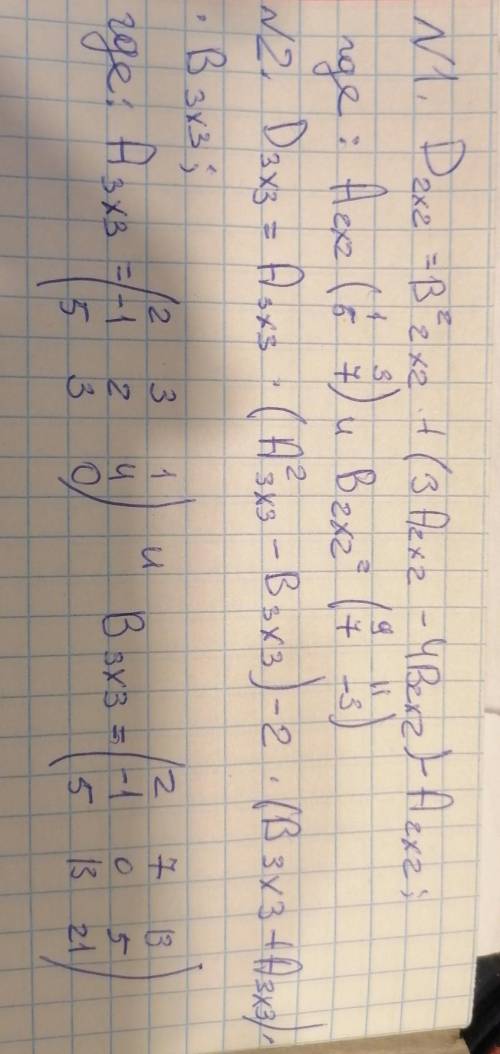 N1. D₂ₓ₂ = B²₂ₓ₂ + (3A₂ₓ₂ - 4B₂ₓ₂) - A₂ₓ₂;
где: A₂ₓ₂ (1 3
5 7) и B₂ₓ₂ = (9 11
7 -3)
N2. D₃ₓ₃ = A₃ₓ₃ · (A²₃ₓ₃ - B₃ₓ₃) - 2 · (B₃ₓ₃ + A₃ₓ₃) ·
· B₃ₓ₃;
где: A₃ₓ₃ = (2 3 1
-1 2 4
5 3 0) и B₃ₓ₃ = (2 7 13
-1 0 5
5 13 21)